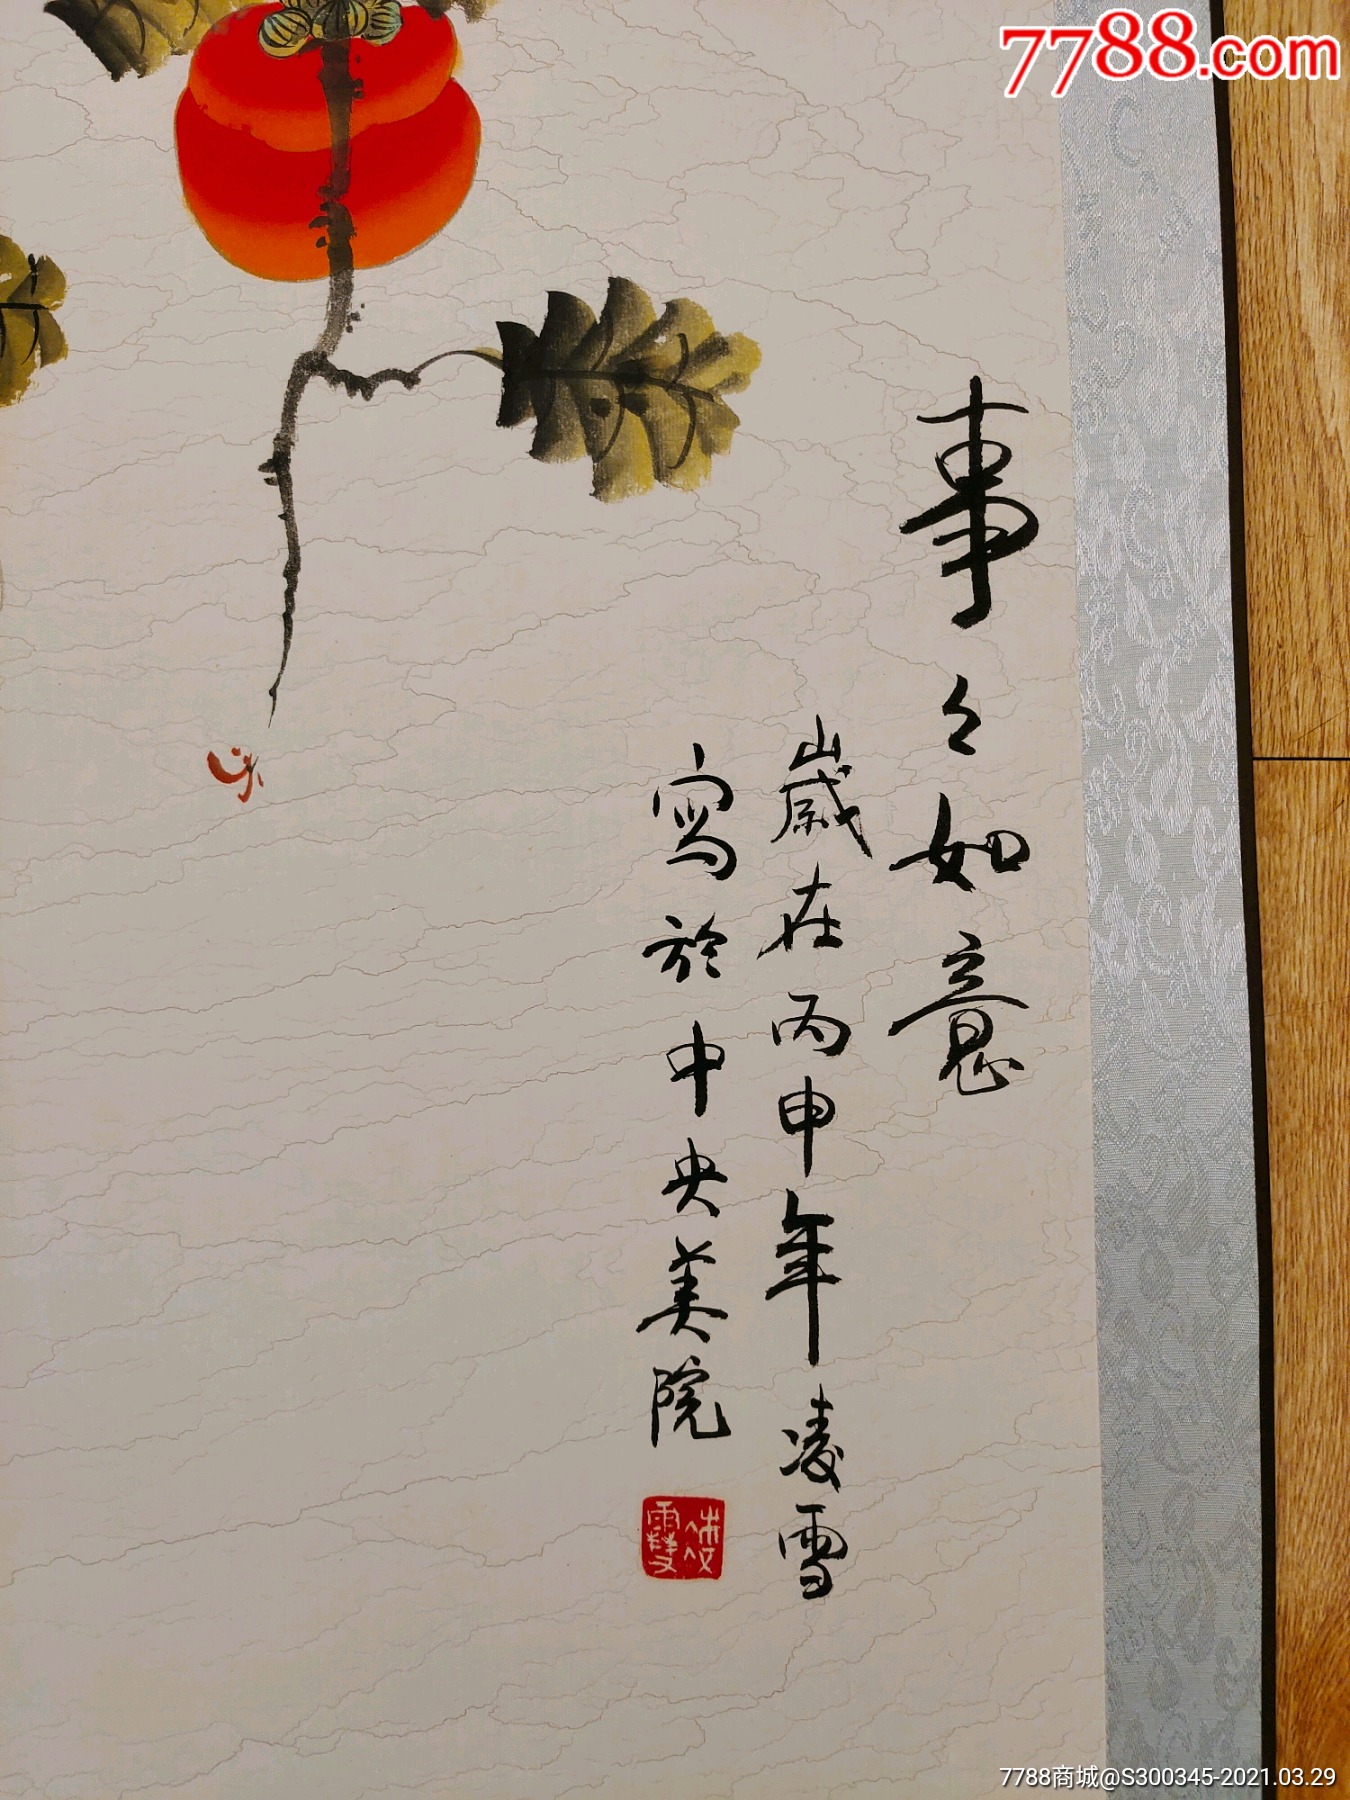 7788.com
事々如意
歲在丙申年凌雪
寫於中央美院
凌雪
7788商城@S300345-2021.03.29